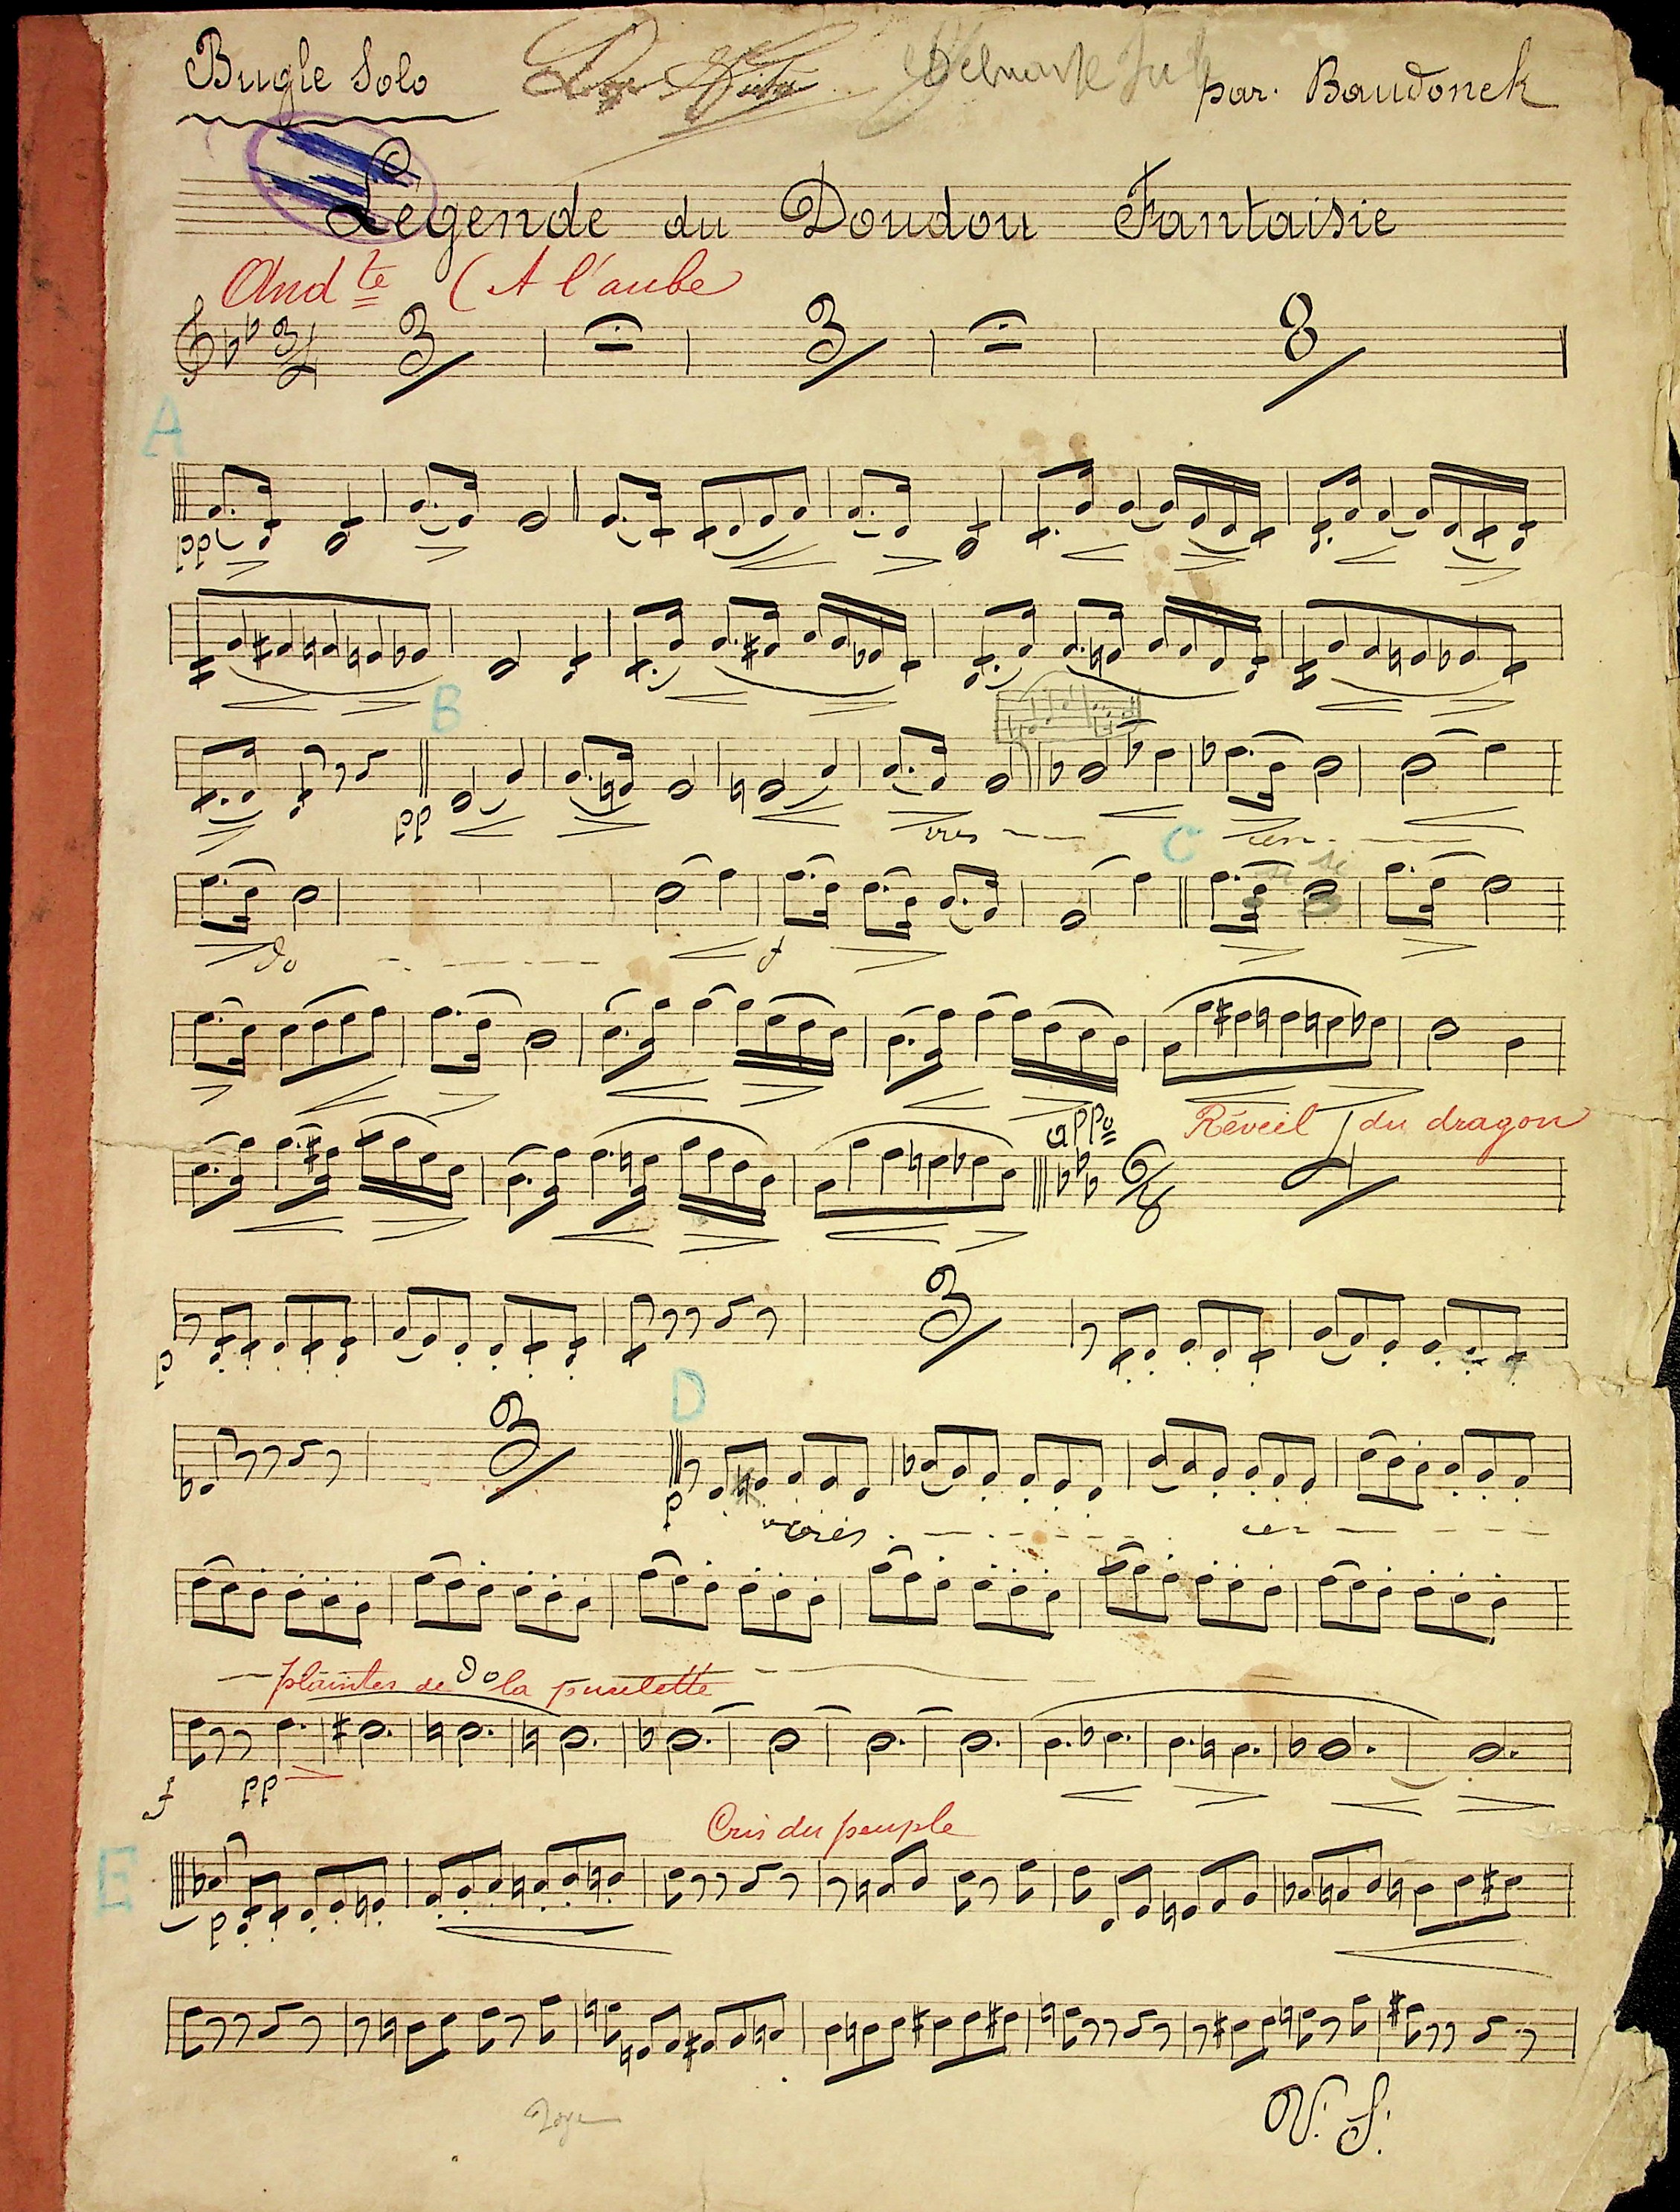 Bugle Solo
par. Baudonck
Légende du Doudou Fantaisie
And te (A l'aube
3 4 3 3 8
A
pp
B
pp cres cen
C
do f
si
appo Réveil du dragon
6 8 4
p 3
D
3 p cres cen
plaintes de do la pucelette
f pp
Cris du peuple
E
p
V. S.